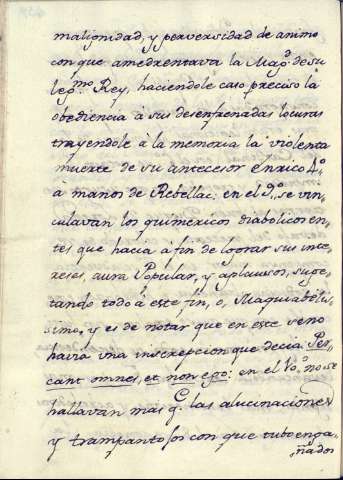 malignidad, y perversidad de animo
con que amedrentava la Mag.d de su
leg.mo Rey, haciendole caso preciso la
obediencia à sus desenfrenadas locuras
trayendole à la memoria la violenta
muerte de su antecesor Enrico 4.o
a manos de Rebellac: en el 9.o se vin-
culavan los quimericos diabolicos en-
tes que hacia à fin de lograr sus inte-
reses, aura Popular, y aplausos, suge-
tando todo à este fin, o, Maquiabelis-
simo, y es de notar que en este seno
havia una inscrepcion que decia Pe-
cant omnes, et non ego: en el Vo.o no se
hallavan mas q. las alucinaciones
y trampantojos con que tubo enga-
ñados